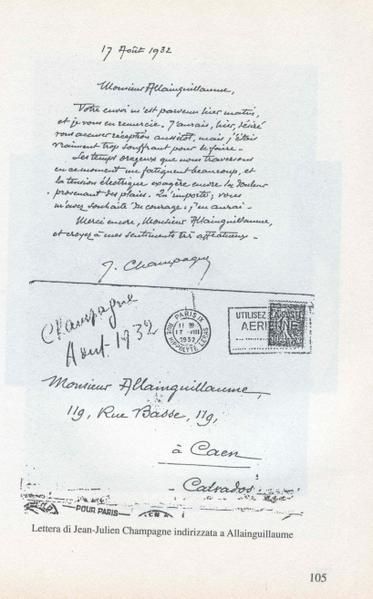 17 Août 1932
Monsieur Allainguillaume,
Votre envoi m'est parvenu hier matin,
et je vous en remercie. J'aurais, hier, désiré
vous accuser réception aussitôt, mais j'étais
vraiment trop souffrant pour le faire.
Les temps orageux que nous traversons
en ce moment me fatiguent beaucoup, et
la tension électrique exagère encore la douleur
provenant des plaies. N'importe; vous
m'avez souhaité du courage; j'en aurai.
Merci encore, Monsieur Allainguillaume,
et croyez à mes sentiments très affectueux.
J. Champagne
Champagne
Août 1932
PARIS IX
17 VIII
1932
RUE HIPPOLYTE LEBAS
UTILISEZ LA POSTE
AERIENNE
Monsieur Allainguillaume,
119, Rue Basse, 119,
à Caen
Calvados
POUR PARIS
Lettera di Jean-Julien Champagne indirizzata a Allainguillaume
105